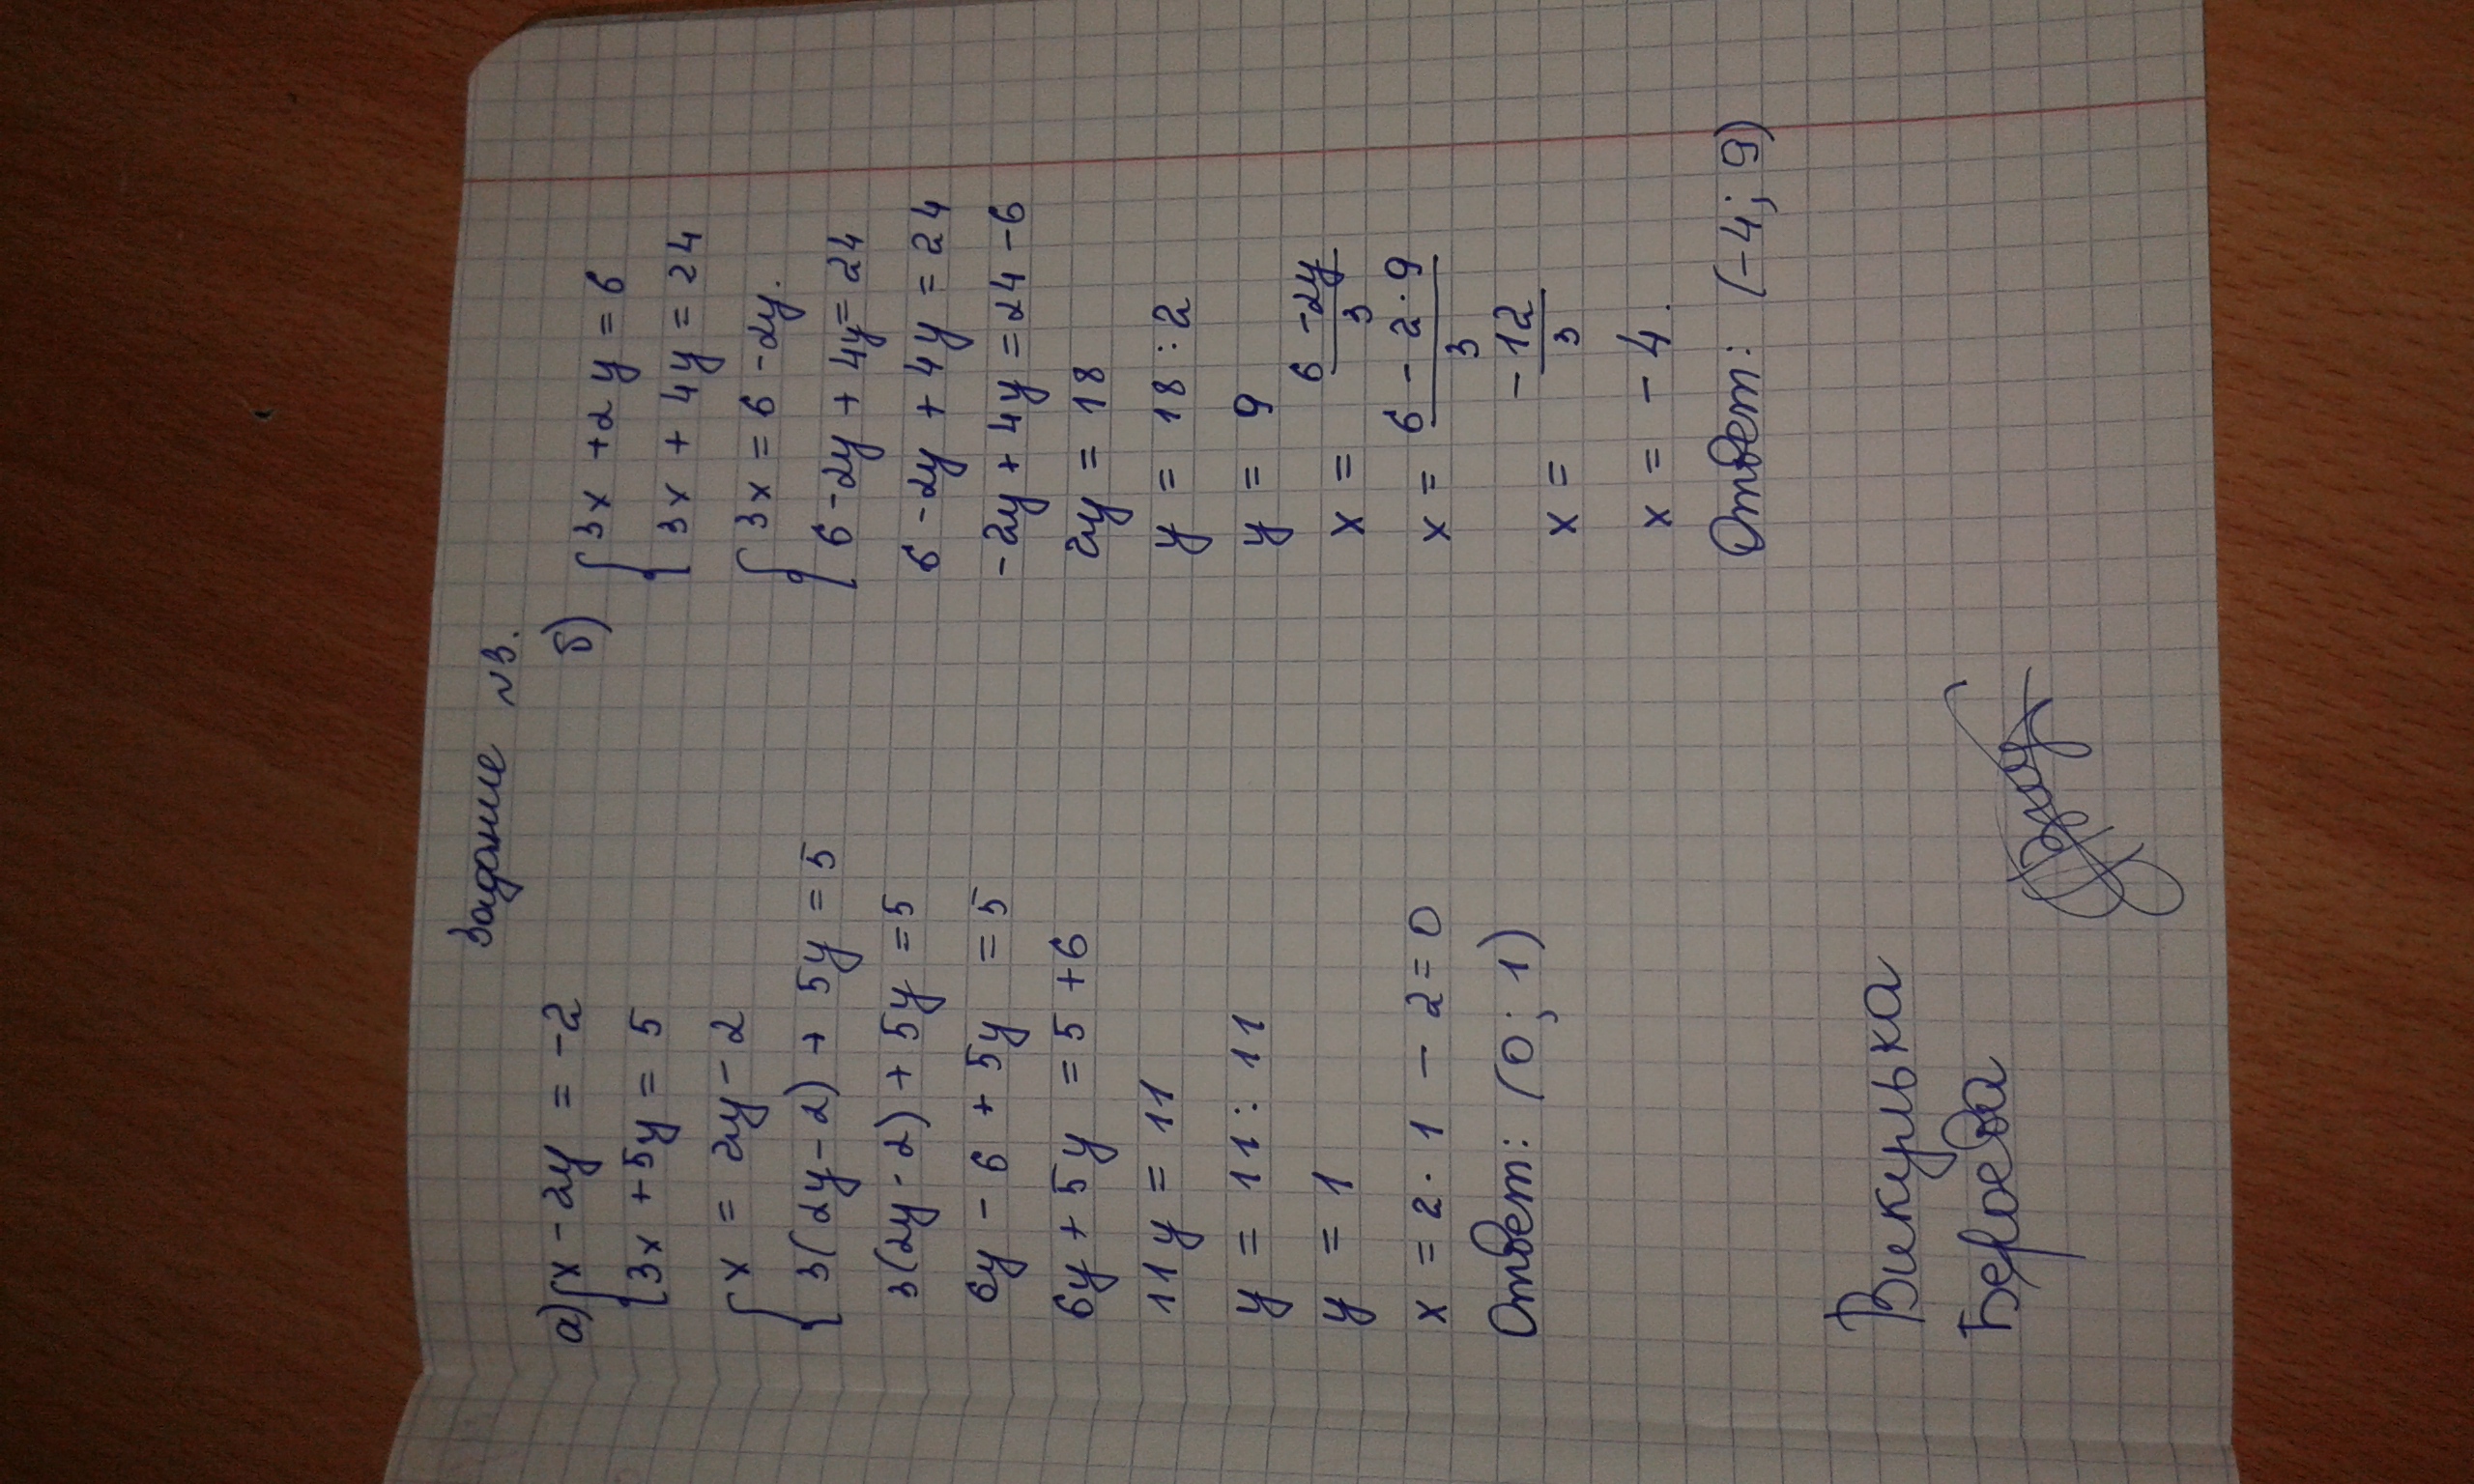 Задание №3.
а) { x - 2y = -2
3x + 5y = 5
{ x = 2y - 2
3(2y - 2) + 5y = 5
3(2y - 2) + 5y = 5
6y - 6 + 5y = 5
6y + 5y = 5 + 6
11y = 11
y = 11 : 11
y = 1
x = 2 · 1 - 2 = 0
Ответ: (0; 1)
б) { 3x + 2y = 6
3x + 4y = 24
{ 3x = 6 - 2y.
6 - 2y + 4y = 24
6 - 2y + 4y = 24
-2y + 4y = 24 - 6
2y = 18
y = 18 : 2
y = 9
x = (6 - 2y)/3
x = (6 - 2·9)/3
x = -12/3
x = -4.
Ответ: (-4; 9)
Викулька